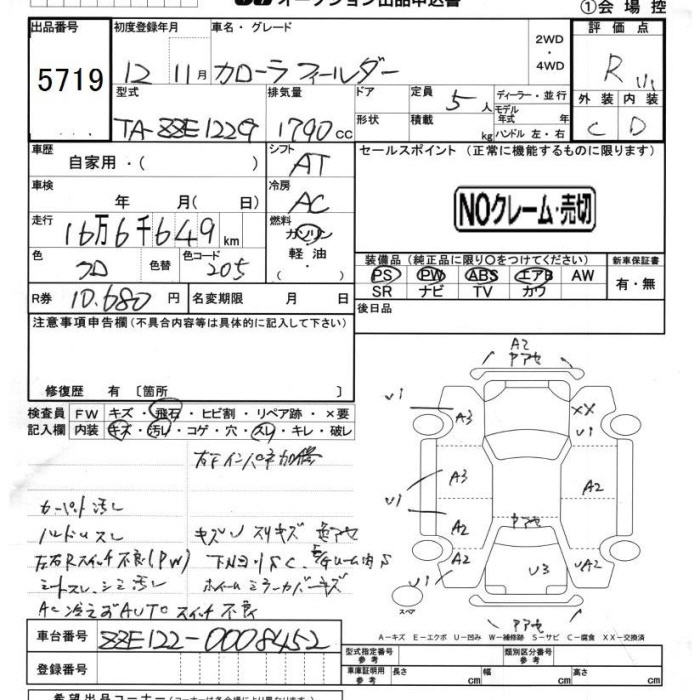 オークション出品申込書
①会場控
出品番号 初度登録年月 車名・グレード 2WD・4WD 評価点
5719 12 11月 カローラフィールダー R
型式 排気量 ドア 定員 5人 ディーラー・並行 外装 内装
TA-ZZE122G 1790cc 形状 積載 kg モデル年式 年 ハンドル 左・右 C D
車歴 シフト セールスポイント (正常に機能するものに限ります)
自家用・( ) AT
車検 冷房
年 月( 日) AC NOクレーム・売切
走行 燃料
16万6千649km ガソリン
色 色替 色コード 軽油 装備品 (純正品に限り○をつけてください) 新車保証書
クロ 205 ・( ) PS PW ABS エアB AW 有・無
SR ナビ TV カワ
R券 10.680円 名変期限 月 日 後日品
注意事項申告欄 (不具合内容等は具体的に記入して下さい)
修復歴 有 〔箇所 〕
検査員 FW キズ・飛石・ヒビ割・リペア跡・×要
記入欄 内装 キズ・汚レ・コゲ・穴・スレ・キレ・破レ
A2
アアセ
A3 XX
U1 U1
A3 A2
U1 アアセ
A2
U1 U3 UA2
スペア アアセ
カーペット汚レ
ハンドルスレ キズ U スリキズ 色アセ
左右Rスイッチ不良(PW)
シートスレ、シミ汚レ ホイールミラーカバーキズ
AC冷えズAUTOスイッチ不良
A－キズ E－エクボ U－凹み W－補修跡 S－サビ C－腐食 XX－交換済
車台番号 ZZE122-0008452
型式指定番号 参考 類別区分番号 参考
登録番号 車庫証明用 参考 長さ cm 幅 cm 高さ cm
希望出品コーナー